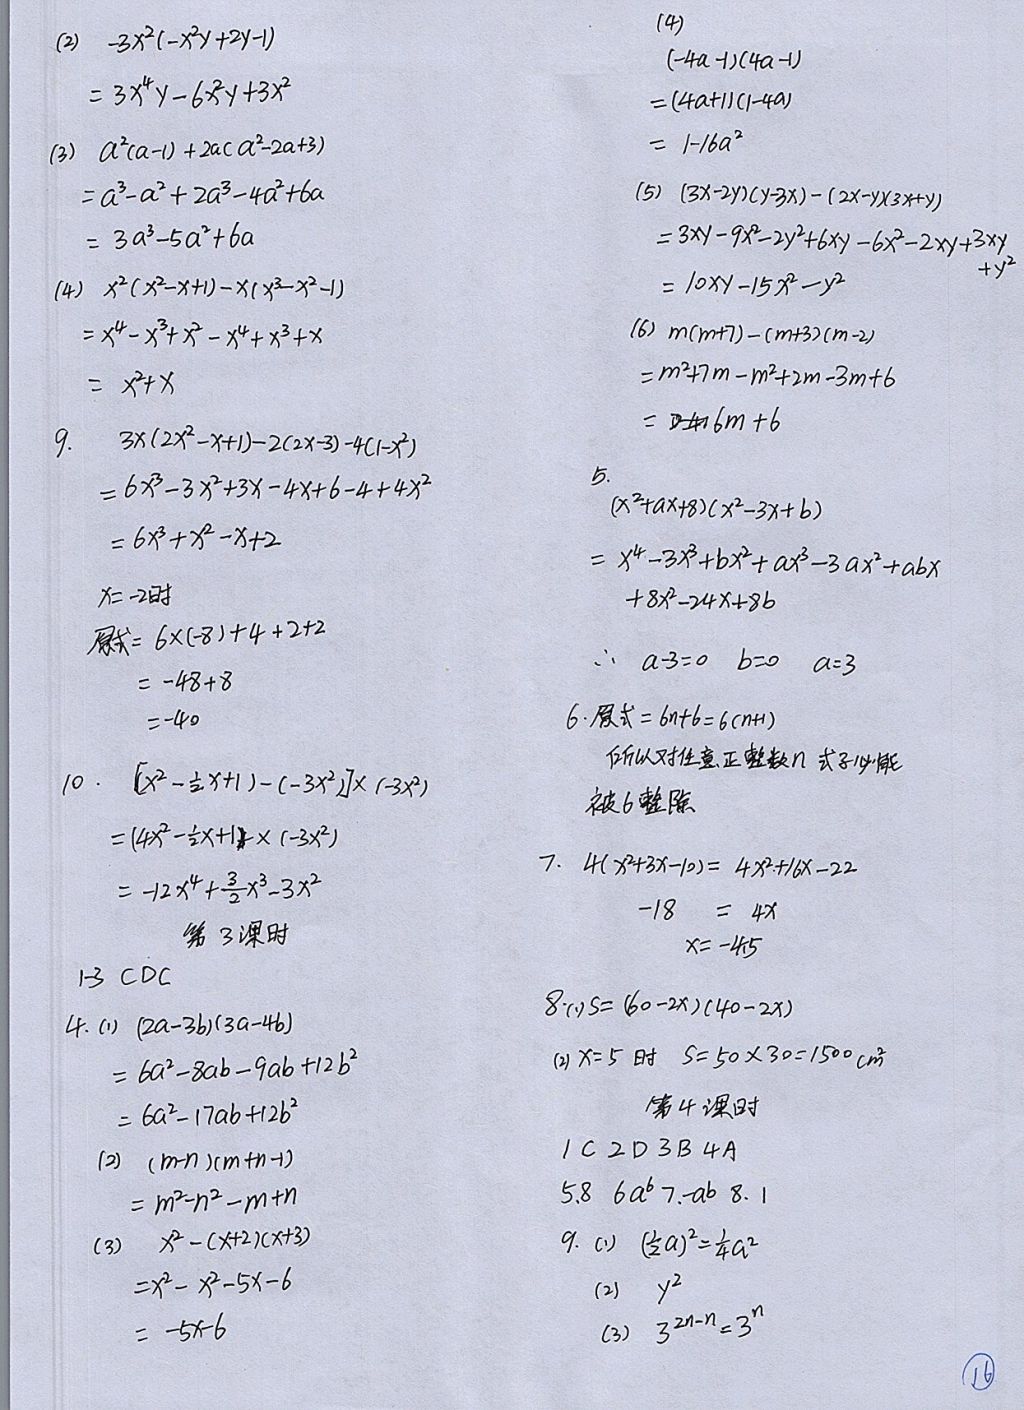 (2) -3x²(-x²y+2y-1)
= 3x⁴y-6x²y+3x²
(3) a²(a-1)+2a(a²-2a+3)
=a³-a²+2a³-4a²+6a
= 3a³-5a²+6a
(4) x²(x²-x+1)-x(x³-x²-1)
=x⁴-x³+x²-x⁴+x³+x
= x²+x
9. 3x(2x²-x+1)-2(2x-3)-4(1-x²)
=6x³-3x²+3x-4x+6-4+4x²
=6x³+x²-x+2
x=-2时
原式=6×(-8)+4+2+2
=-48+8
=-40
10. [x²-½x+1)-(-3x²)]×(-3x²)
=(4x²-½x+1)×(-3x²)
=-12x⁴+3/2x³-3x²
第3课时
1-3 CDC
4.(1) (2a-3b)(3a-4b)
=6a²-8ab-9ab+12b²
=6a²-17ab+12b²
(2) (m-n)(m+n-1)
=m²-n²-m+n
(3) x²-(x+2)(x+3)
=x²-x²-5x-6
= -5x-6
(4)
(-4a-1)(4a-1)
=(4a+1)(1-4a)
= 1-16a²
(5) (3x-2y)(y-3x)-(2x-y)(3x+y)
=3xy-9x²-2y²+6xy-6x²-2xy+3xy
+y²
=10xy-15x²-y²
(6) m(m+7)-(m+3)(m-2)
=m²+7m-m²+2m-3m+6
= 6m+6
5.
(x²+ax+8)(x²-3x+b)
= x⁴-3x³+bx²+ax³-3ax²+abx
+8x²-24x+8b
∴ a-3=0 b=0 a=3
6.原式=6n+6=6(n+1)
所以对任意正整数n 式子必能
被6整除
7. 4(x²+3x-10)= 4x²+16x-22
-18 = 4x
x=-4.5
8.(1)S=(60-2x)(40-2x)
(2) x=5时 S=50×30=1500cm²
第4课时
1C 2D 3B 4A
5.8 6a⁶ 7.-ab 8.1
9. (1) (½a)²=¼a²
(2) y²
(3) 3²ⁿ⁻ⁿ=3ⁿ
16